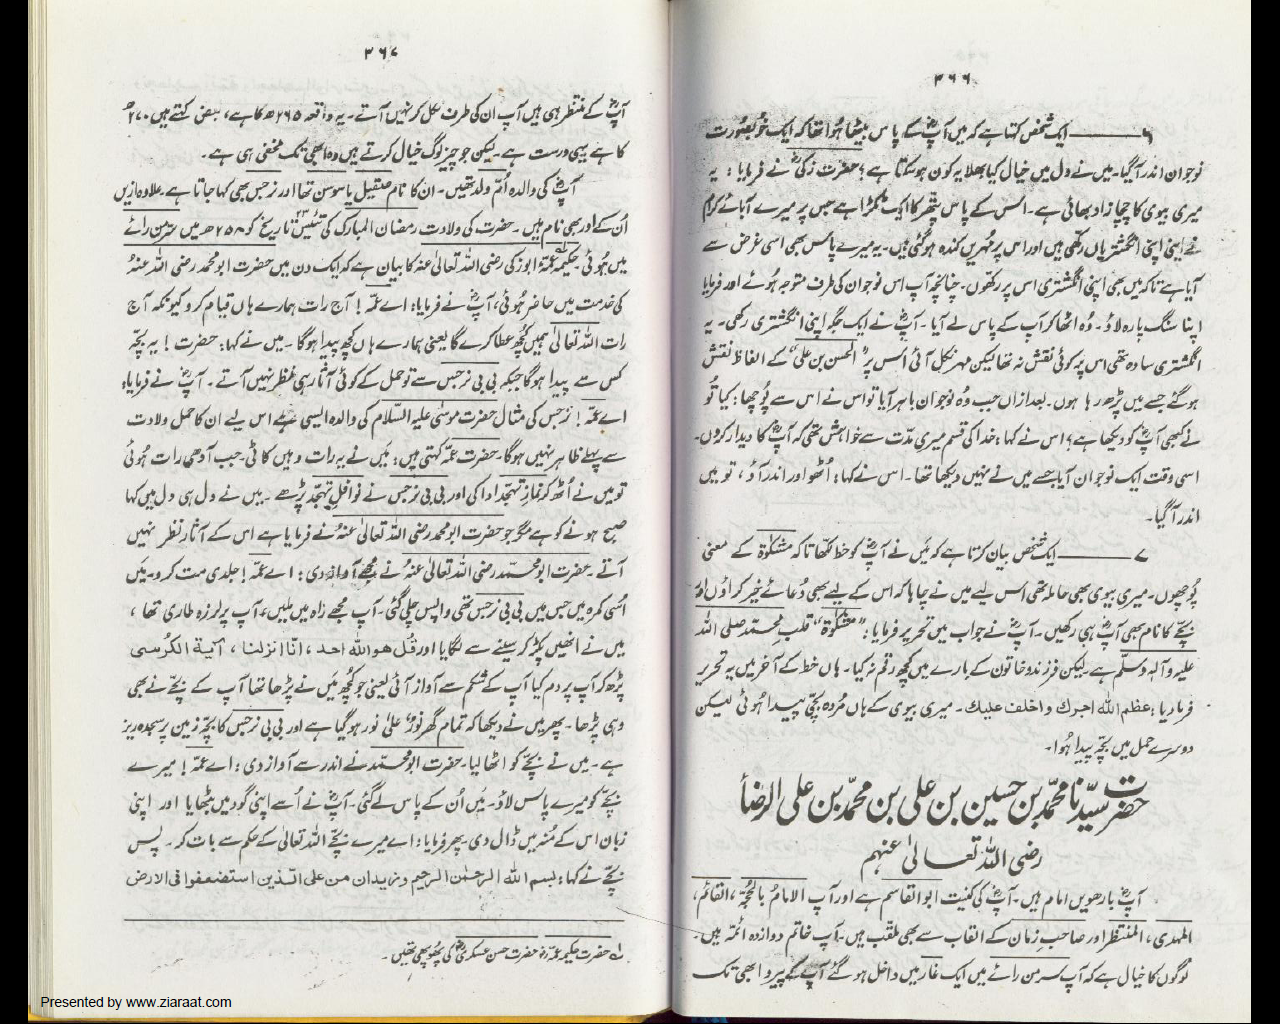 ۳۶۶
۶ ——— ایک شخص کہتا ہے کہ میں آپؓ کے پاس بیٹھا ہوا تھا کہ ایک خوبصورت
نوجوان اندر آ گیا۔ میں نے دل میں خیال کیا بھلا یہ کون ہو سکتا ہے؟ حضرت زکیؓ نے فرمایا: یہ
میری بیوی کا چچا زاد بھائی ہے۔ اس کے پاس پتھر کا ایک ٹکڑا ہے جس پر میرے آبائے کرام
نے اپنی اپنی انگشتریاں رکھی ہیں اور اس پر مُہریں کندہ ہو گئی ہیں۔ یہ میرے پاس بھی اسی غرض سے
آیا ہے تاکہ میں بھی اپنی انگشتری اس پر رکھوں۔ چنانچہ آپ اس نوجوان کی طرف متوجہ ہوئے اور فرمایا
اپنا سنگ پارہ لاؤ۔ وُہ اٹھا کر آپ کے پاس لے آیا۔ آپؓ نے ایک جگہ اپنی انگشتری رکھی۔ یہ
انگشتری سادہ تھی اس پر کوئی نقش نہ تھا لیکن مہر نکل آئی اُس پر "الحسن بن علی" کے الفاظ نقش
ہو گئے جسے میں پڑھ رہا ہوں۔ بعد ازاں جب وُہ نوجوان باہر آیا تو اس نے اس سے پُوچھا: کیا تُو
نے کبھی آپؓ کو دیکھا ہے؟ اس نے کہا: خدا کی قسم میری مدّت سے خواہش تھی کہ آپؓ کا دیدار کروں۔
اسی وقت ایک نوجوان آیا جسے میں نے نہیں دیکھا تھا۔ اس نے کہا: اُٹھو اور اندر آؤ، تو میں
اندر آ گیا۔
۷ ——— ایک شخص بیان کرتا ہے کہ مَیں نے آپؓ کو خط لکھا تاکہ مشکٰوۃ کے معنی
پُوچھوں۔ میری بیوی بھی حاملہ تھی اس لیے میں نے چاہا کہ اس کے لیے بھی دُعائے خیر کراؤں اور
بچّے کا نام بھی آپؓ ہی رکھیں۔ آپؓ نے جواب میں تحریر فرمایا: "مشکٰوۃ" قلبِ محمد صلی اللہ
علیہ وآلہ وسلّم ہے لیکن فرزند و خاتون کے بارے میں کچھ رقم نہ کیا۔ ہاں خط کے آخر میں یہ تحریر
فرما دیا: عظم اللہ اجرک و اخلف علیک۔ میری بیوی کے ہاں مُردہ بچّی پیدا ہُوئی لیکن
دوسرے حمل میں بچّہ پیدا ہُوا۔
حضرت سیّدنا محمّد بن حسین بن علی بن محمّد بن علی الرضاؑ
رضی اللہ تعالیٰ عنہم
آپؓ بارھویں امام ہیں۔ آپؓ کی کنیت ابوالقاسم ہے اور آپ الامامُ بالحُجّہ، القائم،
المہدی، المنتظر اور صاحب زمان کے القاب سے بھی ملقّب ہیں۔ آپ خاتم دوازدہ ائمّہ ہیں۔
لوگوں کا خیال ہے کہ آپ سرمن رائے میں ایک غار میں داخل ہو گئے آپؓ کے پیرو ابھی تک
۳۶۷
آپؓ کے منتظر ہی ہیں آپ ان کی طرف نکل کر نہیں آتے۔ یہ واقعہ ۲۶۵ھ کا ہے، بعض کہتے ہیں ۲۷۰ھ
کا ہے یہی درست ہے۔ لیکن جو چیز لوگ خیال کرتے ہیں وہ ابھی تک مخفی ہی ہے۔
آپؓ کی والدہ اُمّ ولد تھیں۔ ان کا نام صقیل یا سوسن تھا اور نرجس بھی کہا جاتا ہے۔ علاوہ ازیں
اُن کے اور بھی نام ہیں۔ حضرت کی ولادت رمضان المبارک کی تئیس ۲۳ تاریخ کو ۲۵۸ھ میں سرمن رائے
میں ہُوئی۔ حکیمہؓ عمّۂ ابو زکی رضی اللہ تعالیٰ عنہٗ کا بیان ہے کہ ایک دن میں حضرت ابو محمد رضی اللہ عنہٗ
کی خدمت میں حاضر ہُوئی، آپؓ نے فرمایا: اے عمّہ! آج رات ہمارے ہاں قیام کرو کیونکہ آج
رات اللہ تعالیٰ ہمیں کُچھ عطا کرے گا یعنی ہمارے ہاں کچھ پیدا ہوگا۔ میں نے کہا: حضرت! یہ بچّہ
کس سے پیدا ہوگا جبکہ بی بی نرجس سے تو حمل کے کوئی آثار ہی نظر نہیں آتے۔ آپؓ نے فرمایا:
اے عمّہ! نرجس کی مثال حضرت موسیٰ علیہ السّلام کی والدہ ایسی ہے اس لیے ان کا حمل ولادت
سے پہلے ظاہر نہیں ہوگا۔ حضرت عمّہ کہتی ہیں: مَیں نے یہ رات وہیں کاٹی۔ جب آدھی رات ہُوئی
تو میں نے اُٹھ کر نمازِ تہجّد ادا کی اور بی بی نرجس نے نوافلِ تہجّد پڑھے۔ میں نے دل ہی دل میں کہا
صبح ہونے کو ہے مگر جو حضرت ابو محمد رضی اللہ تعالیٰ عنہٗ نے فرمایا ہے اس کے آثار نظر نہیں
آتے۔ حضرت ابو محمّد رضی اللہ تعالیٰ عنہٗ نے مجھے آواز دی: اے عمّہ! جلدی مت کرو۔ مَیں
اُسی کمرہ میں جس میں بی بی نرجس تھی واپس چلی گئی۔ آپ مجھے راہ میں ملیں، آپ پر لرزہ طاری تھا،
میں نے انھیں پکڑ کر سینے سے لگایا اور قُل ھو اللہ احد، انّا انزلنا، آیۃ الکرسی
پڑھ کر آپ پر دم کیا آپ کے شکم سے آواز آئی یعنی جو کُچھ مَیں نے پڑھا تھا آپ کے بچّے نے بھی
وہی پڑھا۔ پھر میں نے دیکھا کہ تمام گھر نورٌ علیٰ نور ہو گیا ہے اور بی بی نرجس کا بچّہ زمین پر سجدہ ریز
ہے۔ میں نے بچّے کو اٹھا لیا۔ حضرت ابو محمّد نے اندر سے آواز دی: اے عمّہ! میرے
بچّے کو میرے پاس لاؤ۔ مَیں اُن کے پاس لے گئی۔ آپؓ نے اُسے اپنی گود میں بٹھایا اور اپنی
زبان اس کے مُنہ میں ڈال دی۔ پھر فرمایا: اے میرے بچّے اللہ تعالیٰ کے حکم سے بات کر۔ پس
بچّے نے کہا: بسم اللہ الرحمٰن الرحیم ونریدان من علی الذین استضعفوا فی الارض
لہ حضرت حکیمہ عمہ زکی حضرت حسن عسکریؓ کی پُھوپھی تھیں۔
Presented by www.ziaraat.com